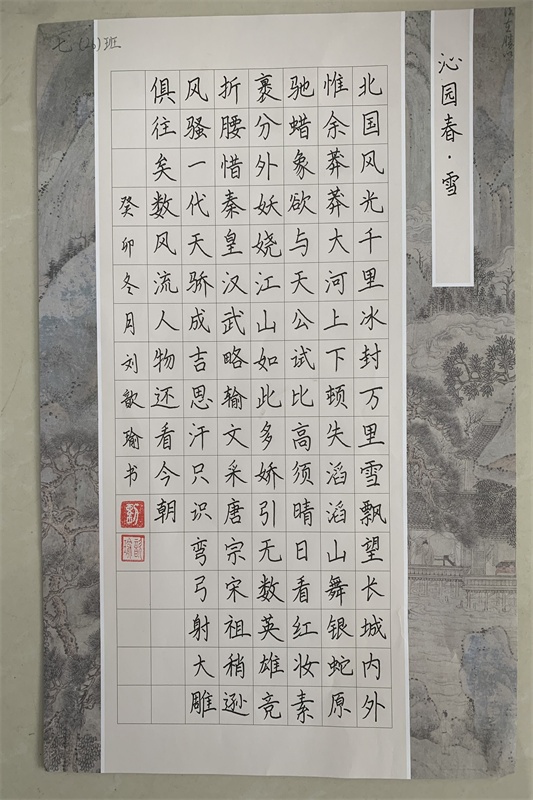 七(26)班
沁园春·雪
北国风光千里冰封万里雪飘望长城内外
惟余莽莽大河上下顿失滔滔山舞银蛇原
驰蜡象欲与天公试比高须晴日看红妆素
裹分外妖娆江山如此多娇引无数英雄竞
折腰惜秦皇汉武略输文采唐宗宋祖稍逊
风骚一代天骄成吉思汗只识弯弓射大雕
俱往矣数风流人物还看今朝
癸卯冬月刘歆瑜书